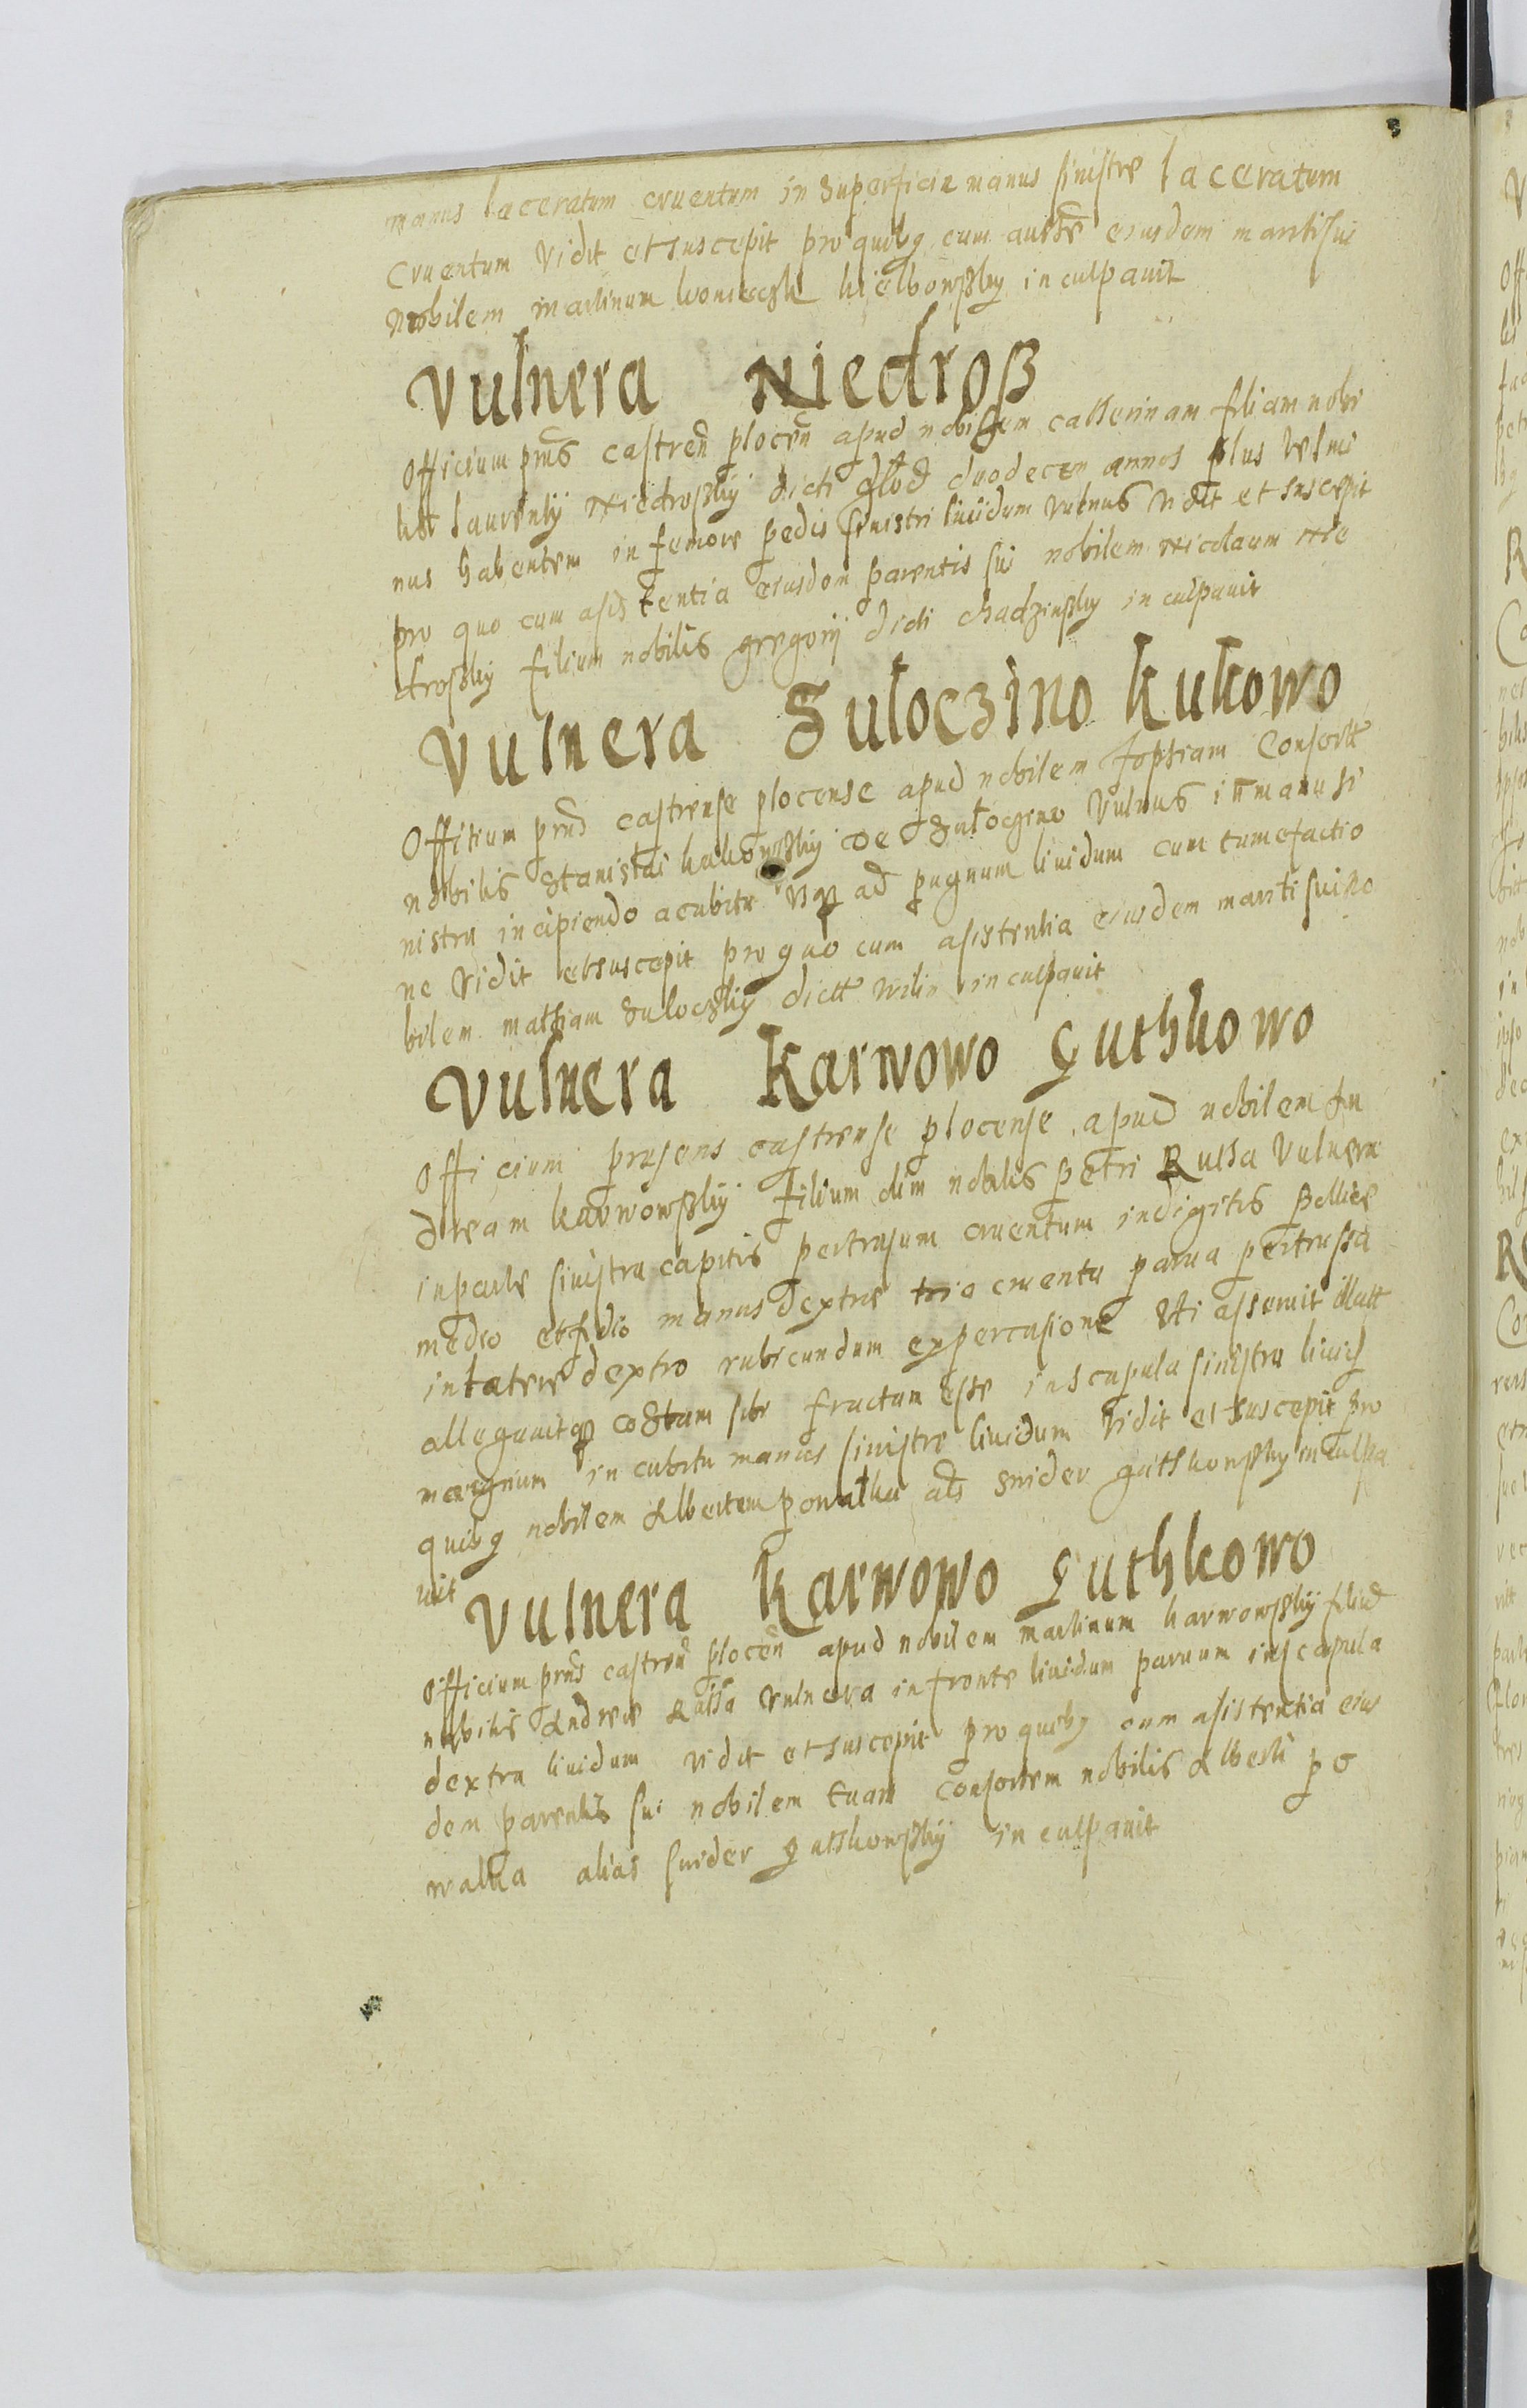 manus laceratum cruentum in superficie manus sinistre laceratum
cruentum vidit et suscepit pro quibus cum eiusdem mariti sui
nobilem martinum kielbowsky inculpauit
Vulnera Niedroß
Officium pns castren plocen apud nobilem catherinam filiam nobi
lis laurenty Niedrosky dicti glod duodecem annos plus vel mi
nus habentem in femore pedis sinistri liuidum vulnus vidit et suscepit
pro quo cum asistentia eiusdem parentis sui nobilem nicolaum nie
drosky filium nobilis gregorij dicti chadzinsky inculpauit
Vulnera Suloczino Kukowo
Offitium pns castrense plocense apud nobilem sophiam Consortem
nobilis Stanislai kukowsky de Suloczino vulnus in manu si
nistra incipiendo a cubitu usque ad pugnum liuidum cum tumefactio
ne vidit et suscepit pro quo cum asistentia eiusdem mariti sui no
bilem mathiam sulocsky dictt wilk inculpauit
Vulnera Karwowo Guthkowo
Officium presens castrense plocense apud nobilem An
dream karwowsky filium olim nobilis petri Russa vulnera
in parte sinistra capitis pertusum cruentum in digitis pollice
medio et manus dextre tria cruenta parua pertussa
in latere dextro rubicundum ex percusione uti asseruit illatt
allegauitque costam sibi fractam esse in scapula sinistra liuid
magnum in cubitu manus sinistre liuidum vidit et suscepit pro
quibus nobilem Albertum powalka als swider guthkowsky inculpa
uit
Vulnera Karwowo Guthkowo
Officium pns castren plocen apud nobilem martinum karwowsky filiu
nobilis Andree Russa vulnera in fronte liuidum paruum in scapula
dextra liuidum vidit et suscepit pro quibus cum asistentia eius
dem parentis sui nobilem Euam consortem nobilis Alberti po
walka alias swider guthkowsky inculpauit